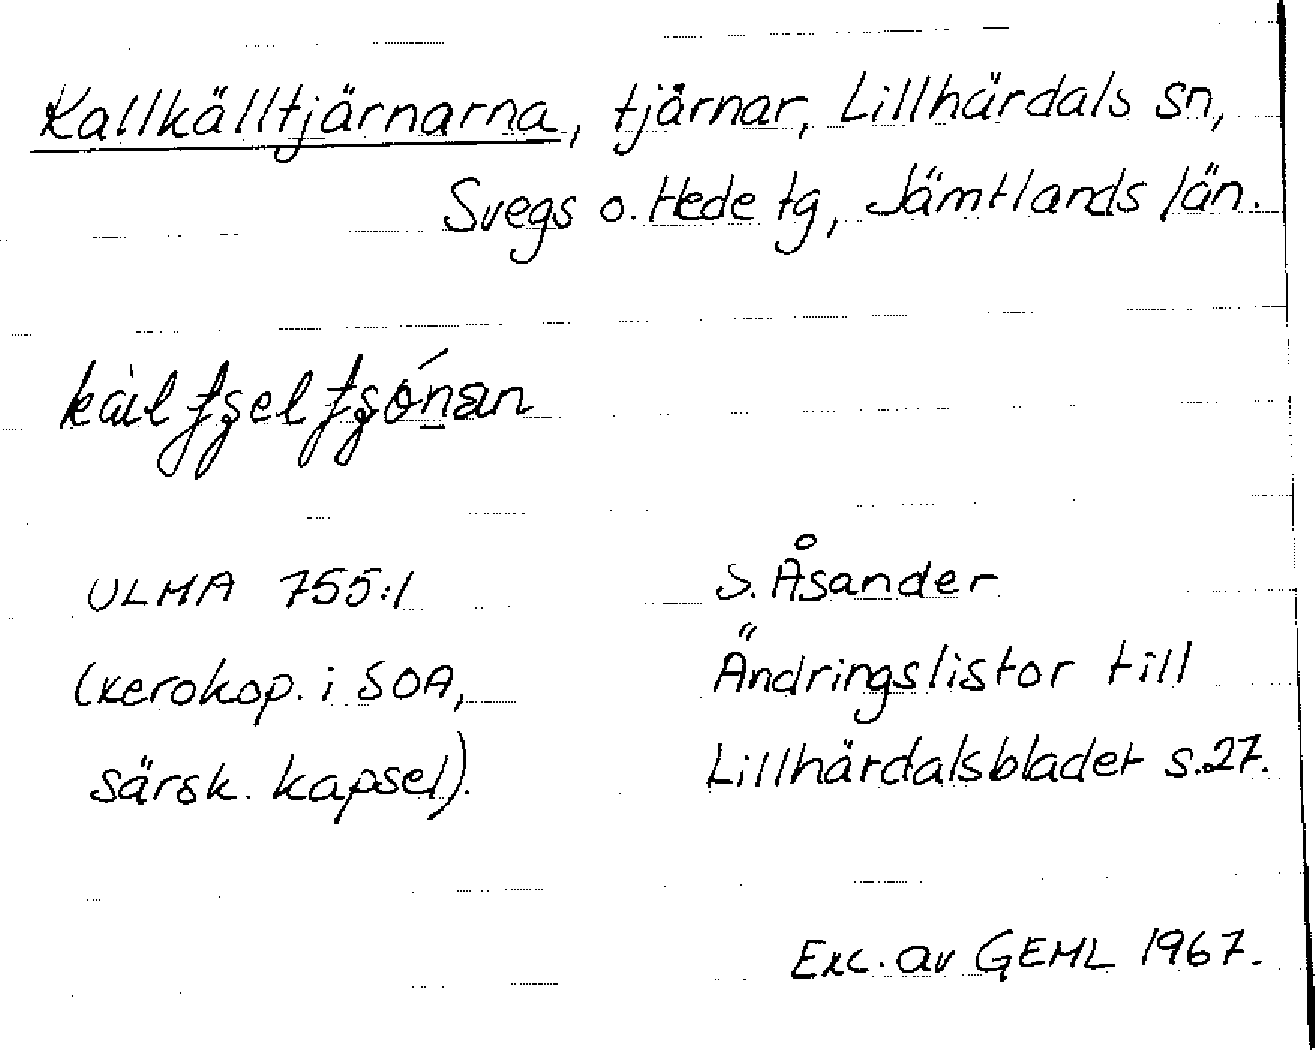 Kallkälltjärnarna, tjärnar, Lillhärdals sn,
Svegs o. Hede tg, Jämtlands län.
ULMA 755:1
(xerokop. i SOA,
särsk. kapsel).
S. Åsander
Ändringslistor till
Lillhärdalsbladet s.27.
Exc. av GEML 1967.